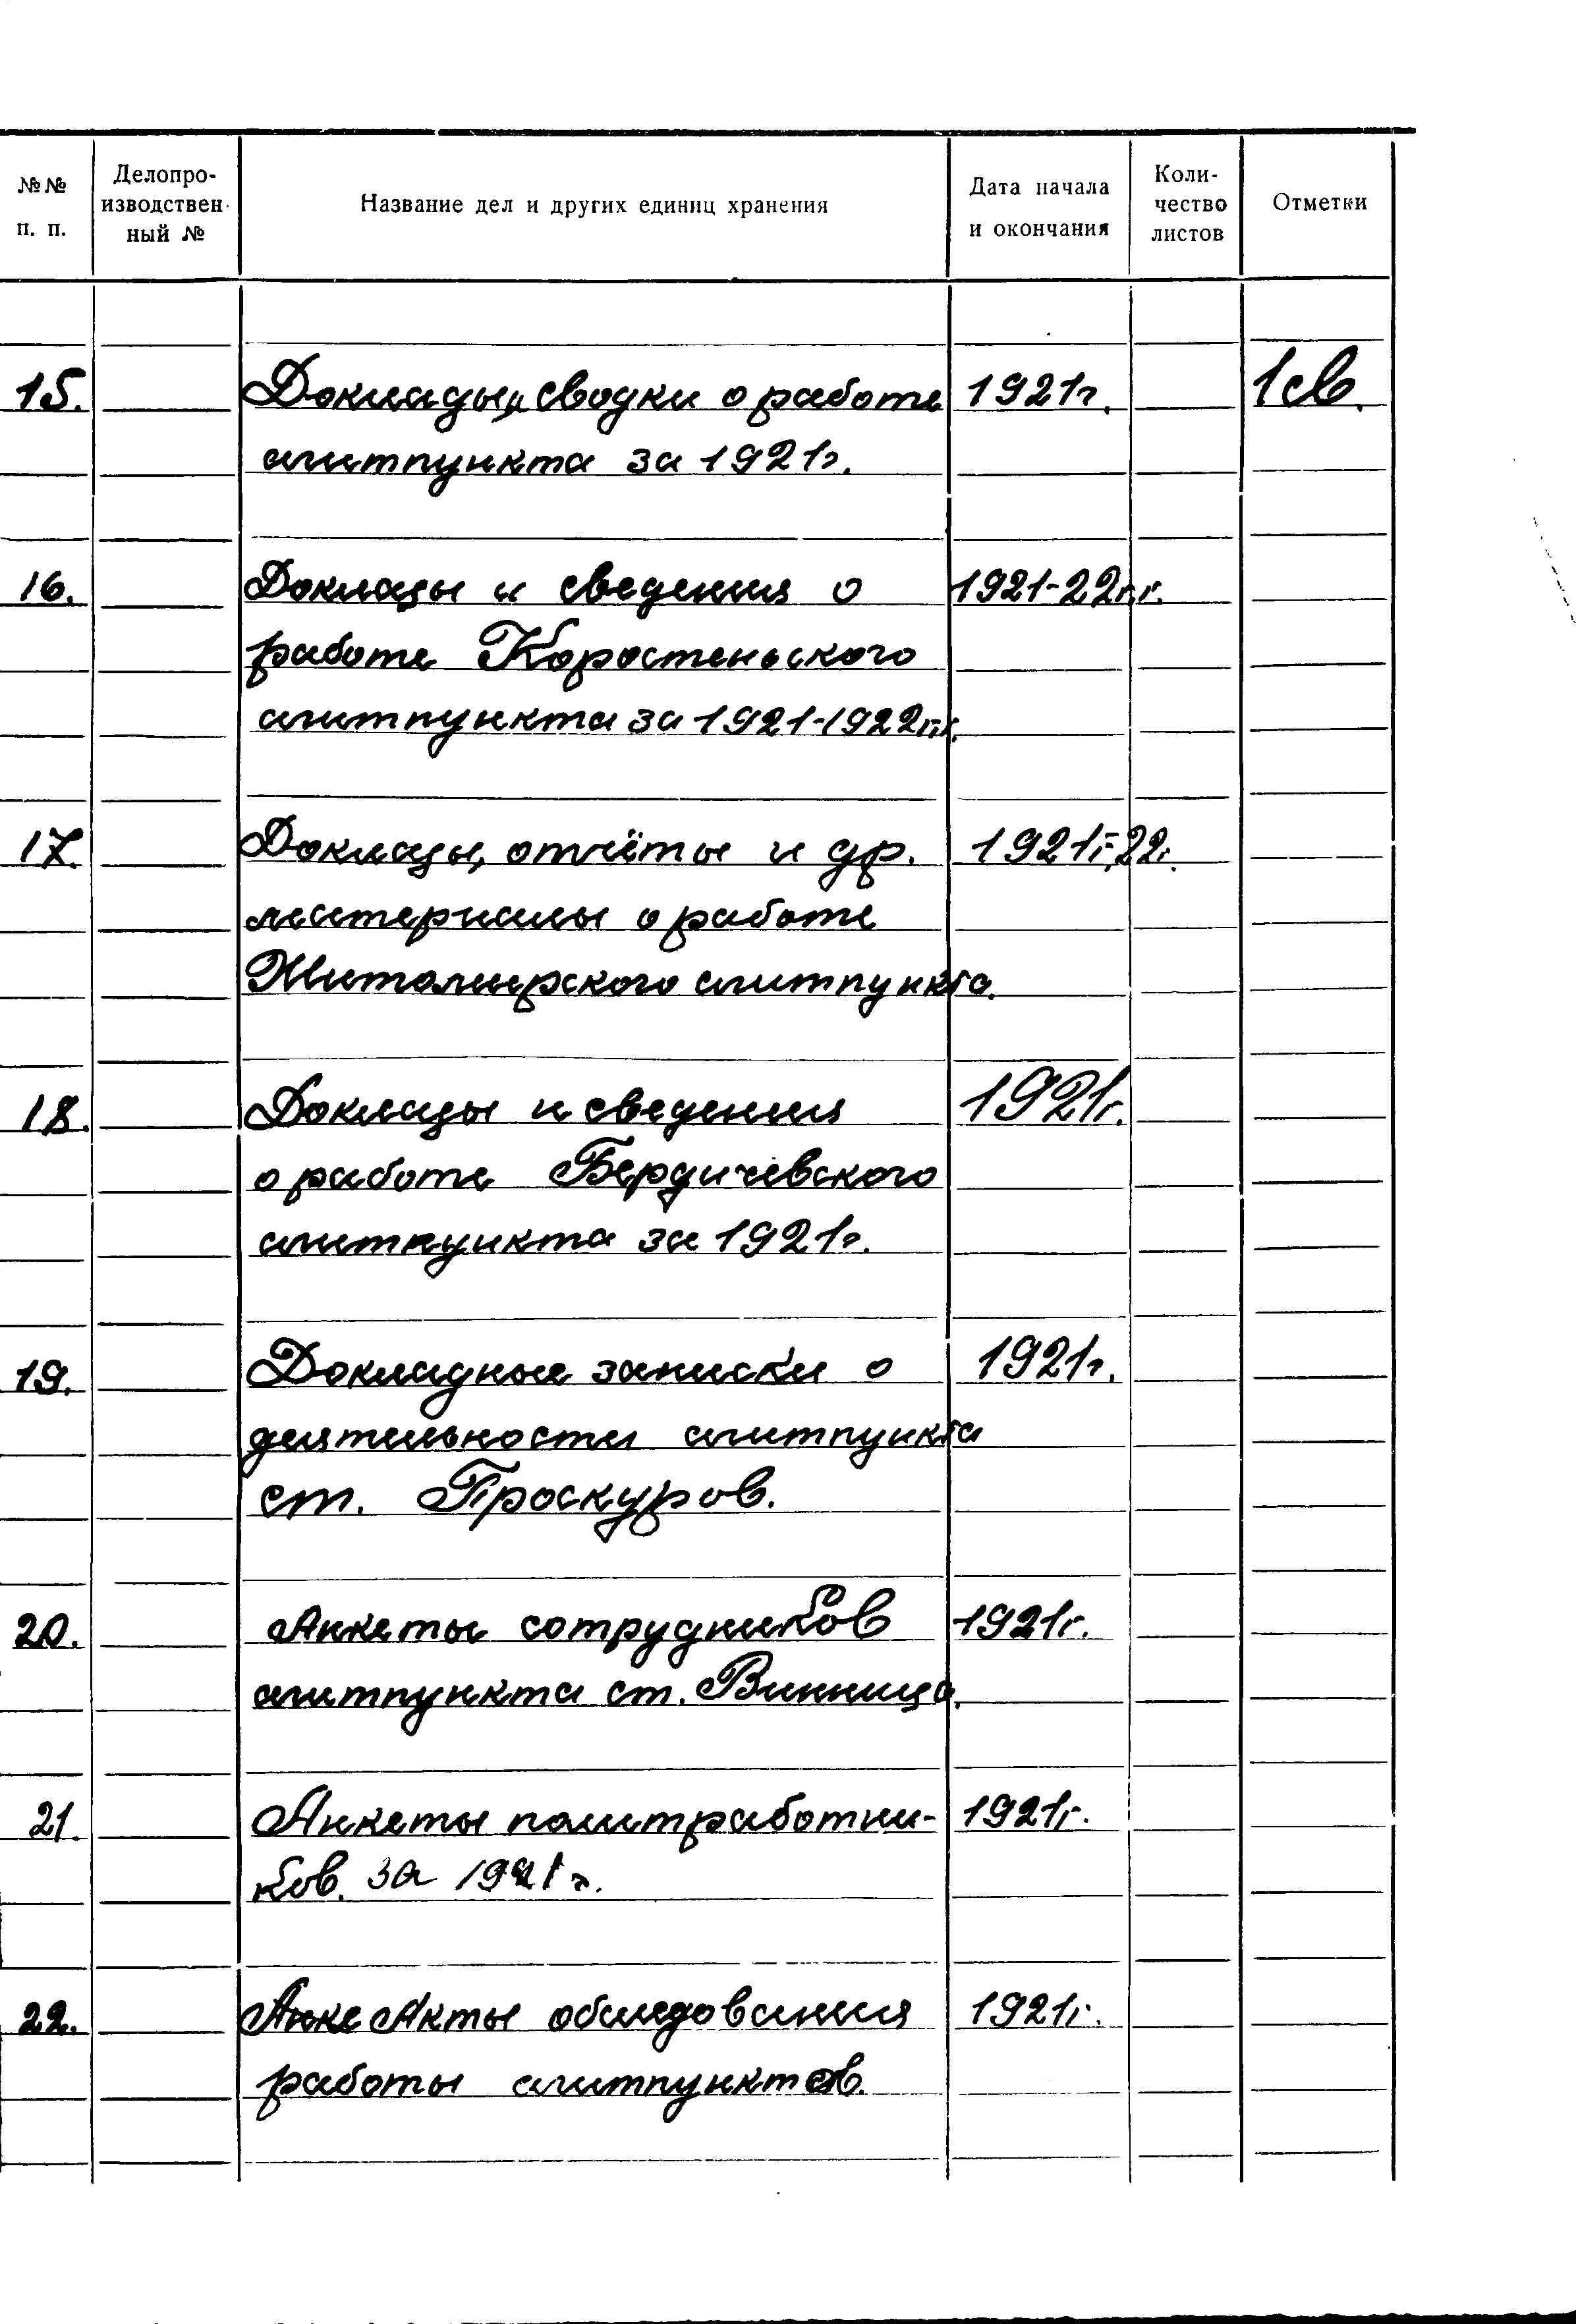 №№ п. п.
Делопро-
изводствен-
ный №
Название дел и других единиц хранения
Дата начала
и окончания
Коли-
чество
листов
Отметки
15. Доклады, сводки о работе 1921г. 1св.
агитпункта за 1921г.
16. Доклады и сведения о 1921-22г.г.
работе Коростеньского
агитпункта за 1921-1922г.г.
17. Доклады, отчёты и др. 1921г.-22г.
материалы о работе
Житомирского агитпункта.
18. Доклады и сведения 1921г.
о работе Бердичевского
агитпункта за 1921г.
19. Докладные записки о 1921г.
деятельности агитпункта
ст. Проскуров.
20. Анкеты сотрудников 1921г.
агитпункта ст. Винница.
21. Анкеты политработни- 1921г.
ков. за 1921г.
22. Анке Акты обследования 1921г.
работы агитпунктов.